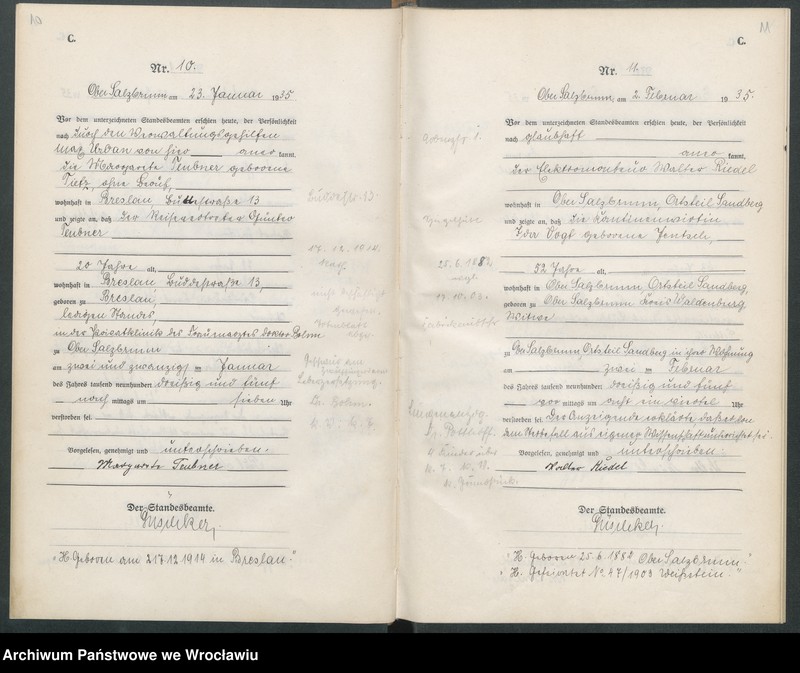 10
C.
Nr. 10.
Ober Salzbrunn am 23. Januar 1935.
Vor dem unterzeichneten Standesbeamten erschien heute, der Persönlichkeit
nach durch den Verwaltungsgehilfen
Max Urban von hier anerkannt,
die Margarete Teubner geborene
Tietz, ohne Beruf,
wohnhaft in Breslau, Buddestraße 13
und zeigte an, daß der Reisevertreter Günter
Teubner
20 Jahre alt,
wohnhaft in Breslau Buddestraße 13,
geboren zu Breslau,
ledigen Standes,
in der Privatklinik des Frauenarztes Doktor Bohm
zu Ober Salzbrunn
am zwei und zwanzigsten Januar
des Jahres tausend neunhundert dreißig und fünf
nach mittags um sieben Uhr
verstorben sei.
Vorgelesen, genehmigt und unterschrieben.
Margarete Teubner
Der Standesbeamte.
"H. Geboren am 217.12.1914 in Breslau."
11
C.
Nr. 11.
Ober Salzbrunn, am 2. Februar 1935.
Vor dem unterzeichneten Standesbeamten erschien heute, der Persönlichkeit
nach glaubhaft
anerkannt,
der Elektromonteur Walter Riedel
wohnhaft in Ober Salzbrunn, Ortsteil Sandberg
und zeigte an, daß die Kantinenwirtin
Ida Vogt geborene Jentsch,
52 Jahre alt,
wohnhaft in Ober Salzbrunn, Ortsteil Sandberg,
geboren zu Ober Salzbrunn Kreis Waldenburg
Witwe
zu Ober Salzbrunn, Ortsteil Sandberg in ihrer Wohnung
am zwei ten Februar
des Jahres tausend neunhundert dreißig und fünf
vor mittags um acht ein viertel Uhr
verstorben sei. Der Anzeigende erklärte, daß er von
dem Sterbefall aus eigener Wissenschaft unterrichtet sei.
Vorgelesen, genehmigt und unterschrieben.
Walter Riedel
Der Standesbeamte.
"H. Geboren 25.6.1882 Ober Salzbrunn."
"H. Geheiratet No 47/1903 Weißstein."
Archiwum Państwowe we Wrocławiu